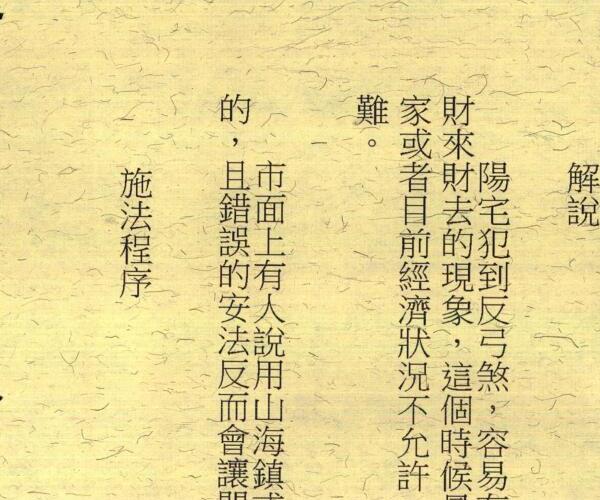 解說
陽宅犯到反弓煞，容易
財來財去的現象，這個時候
家或者目前經濟狀況不允許
難。
市面上有人說用山海鎮
的，且錯誤的安法反而會讓
施法程序